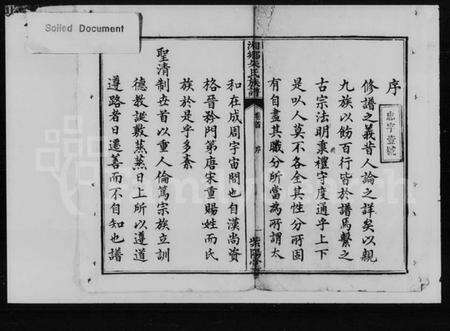 Soiled Document
序
修譜之義昔人論之詳矣以親
九族以飭百行皆於譜爲繫之
古宗法明喪禮守度通乎上下
是以人莫不各全其性分所固
有自盡其職分所當爲所謂太
湘鄉朱氏族譜
卷首
序
一
紫陽堂
和在成周宇宙間也自漢尚資
格晉矜門第唐宋重賜姓而氏
族於是乎多紊
聖清制世首以重人倫篤宗族立訓
德教誕敷蒸蒸日上所以遵道
遵路者日遷善而不自知也譜